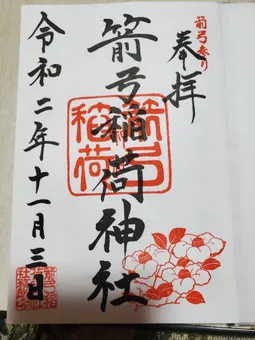 箭弓参り
奉拝
箭弓稲荷神社
箭弓
稲荷
令和二年十一月三日